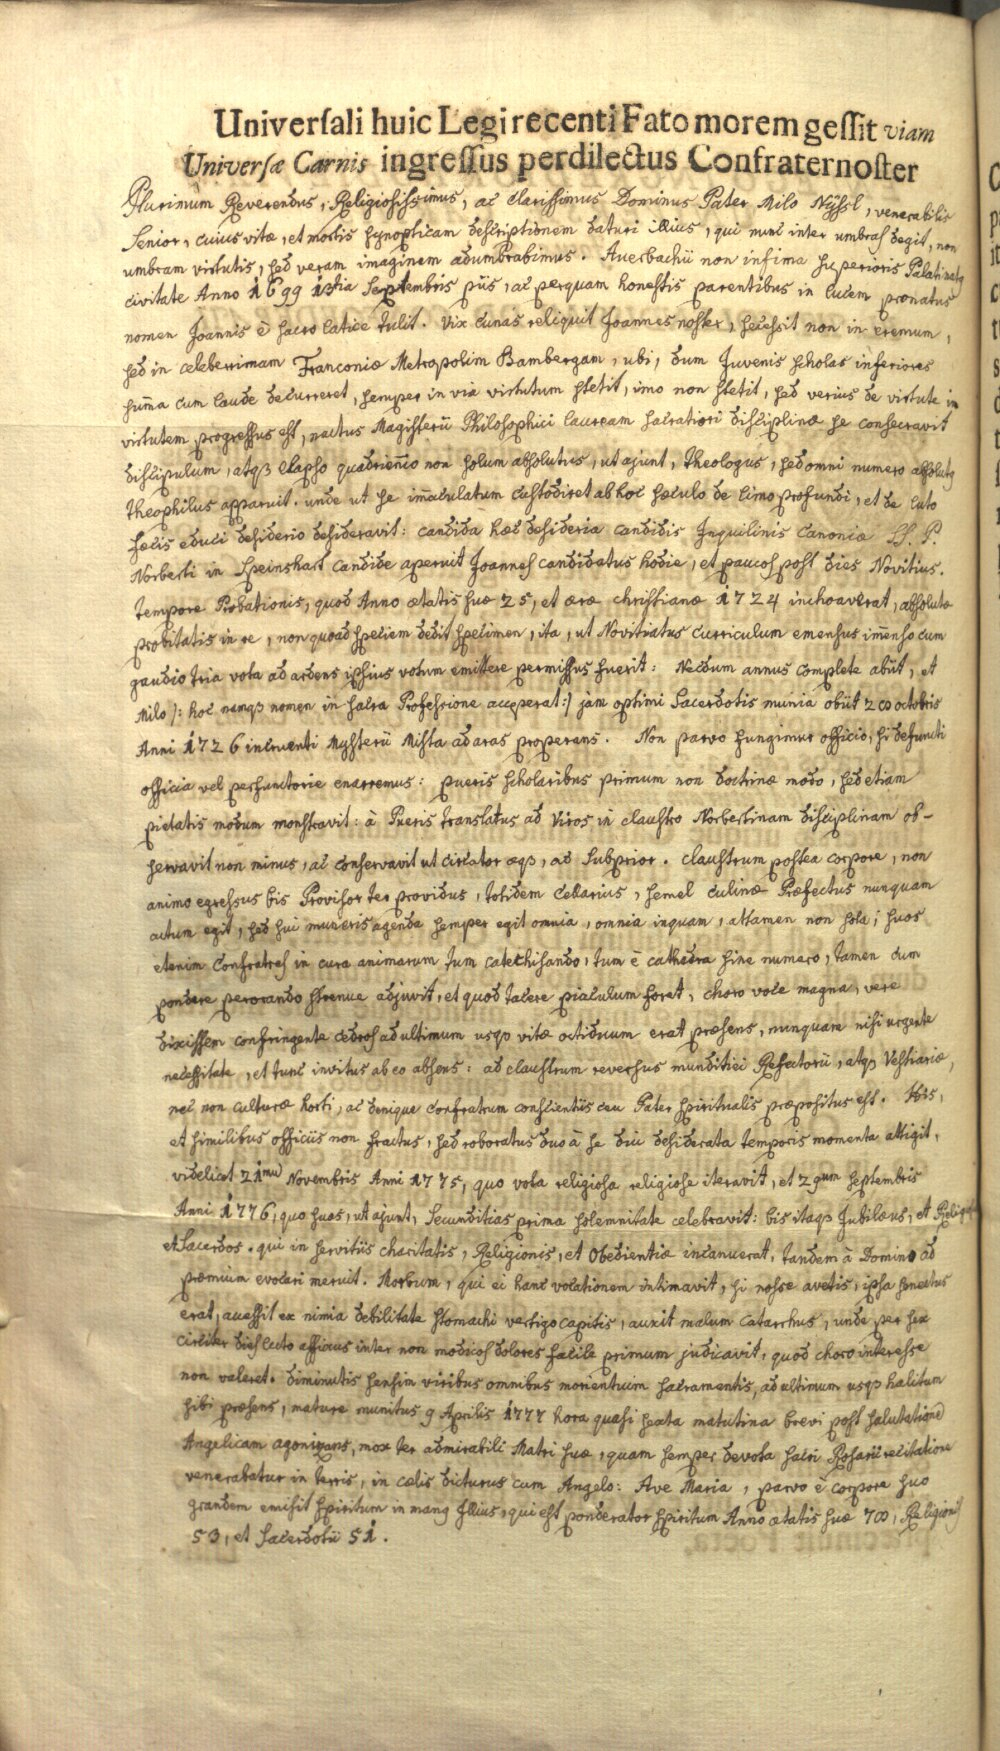 Universali huic Legi recenti Fato morem gessit viam
Universæ Carnis ingressus perdilectus Confrater noster
Plurimum Reverendus, Religiosissimus, ac clarissimus Dominus Pater Milo Nÿssl, venerabilis
Senior, cuius vitæ, et mortis synopticam descriptionem daturi illius, qui nunc inter umbras degit, non
umbram virtutis, sed veram imaginem adumbrabimus. Auerbachii non infima superioris Palatinatus
civitate Anno 1699 13tia Septembris piis, ac perquam honestis parentibus in lucem pronatus
nomen Joannis è sacro latice tulit. Vix cunas reliquit Joannes noster, secessit non in eremum,
sed in celeberrimam Franconiæ Metropolim Bambergam, ubi, dum Juvenis scholas inferiores
suma cum laude decurreret, semper in via virtutum stetit, imo non stetit, sed verius de virtute in
virtutem progressus est, nactus Magisterii Philosophici lauream sacratiori disciplinæ se consecravit
discipulum, atqз elapso quadrienio non solum absolutus, ut ajunt, theologus, sed omni numero absolutus
theophilus apparuit. unde ut se imaculatum custodiret ab hoc sæculo de limo profundi, et de luto
fæcis educi desiderio desideravit: candida hæc desideria candidis Inquilinis Canoniæ SS. P.
Norberti in Speinshart candide aperuit Joannes candidatus hodie, et paucos post dies Novitius.
tempore Probationis, quod Anno ætatis suæ 25, et æræ christianæ 1724 inchoaverat, absolutæ
probitatis in re, non quoad speciem dedit specimen, ita, ut Novitiatus curriculum emensus imenso cum
gaudio tria vota ad ardens ipsius votum emittere permissus fuerit: Necdum annus complete abiit, et
Milo /: hoc namqз nomen in sacra Professione acceperat:/ jam optimi Sacerdotis munia obiit 20 octobris
Anni 1726 incruenti Mysterii Mista ad aras properans. Non parvo fungimur officio, si defuncti
officia vel perfunctorie enarremus: pueris scholaribus primum non doctrinæ modo, sed etiam
pietatis modum monstravit: à Pueris translatus ad Viros in claustro Norbertinam disciplinam ob-
servavit non minus, ac conservavit ut circator æqз, ac Subprior. claustrum postea corpore, non
animo egressus bis Provisor ter providus, totidem Cellarius, semel culinæ Præfectus nunquam
actum egit, sed sui muneris agenda semper egit omnia, omnia inquam, attamen non sola; suos
etenim Confratres in cura animarum tum catechisando, tum è cathedra sine numero, tamen cum
pondere perorando strenue adjuvit, et quod tacere piaculum foret, choro voce magna, vere
dixissem confringente cedros ad ultimum usqз vitæ octiduum erat præsens, nunquam nisi urgente
necessitate, et tunc invitus ab eo absens: ad claustrum reversus munditiei Refectorii, atqз Vestiariæ,
nec non culturæ horti, ac denique confratrum conscientiis ceu Pater spiritualis præpositus est. His,
et similibus officiis non fractus, sed roboratus duo à se diu desiderata temporis momenta attigit,
videlicet 21mu Novembris Anni 1775, quo vota religiosa religiose iteravit, et 29um septembris
Anni 1776, quo suas, ut ajunt, Secunditias prima solemnitate celebravit: bis itaqз Jubilæus, et
et Sacerdos. qui in servitiis charitatis, Religionis, et Obedientiæ incanuerat, tandem à Domino ad
præmium evocari meruit. Morbum, qui ei hanc vocationem intimavit, si nosse avetis, ipsa senectus
erat, accessit ex nimia debilitate stomachi vertigo capitis, auxit malum catarrhus, unde per sex
circiter dies lecto affixus inter non modicos dolores facile primum judicavit, quod choro interesse
non valeret. diminutis sensim viribus omnibus morientium sacramentis, ad ultimum usqз halitum
sibi præsens, mature munitus 9 Aprilis 1777 hora quasi sexta matutina brevi post salutationē
Angelicam agonizans, mox ter admirabili Matri suæ, quam semper devota sacri Rosarii recitatione
venerabatur in terris, in cælis dicturus cum Angelo: Ave Maria, parvo è corpore suo
grandem emisit spiritum in manus Illius, qui est ponderator spirituum Anno ætatis suæ 78, Religionis
53, et Sacerdotii 51.